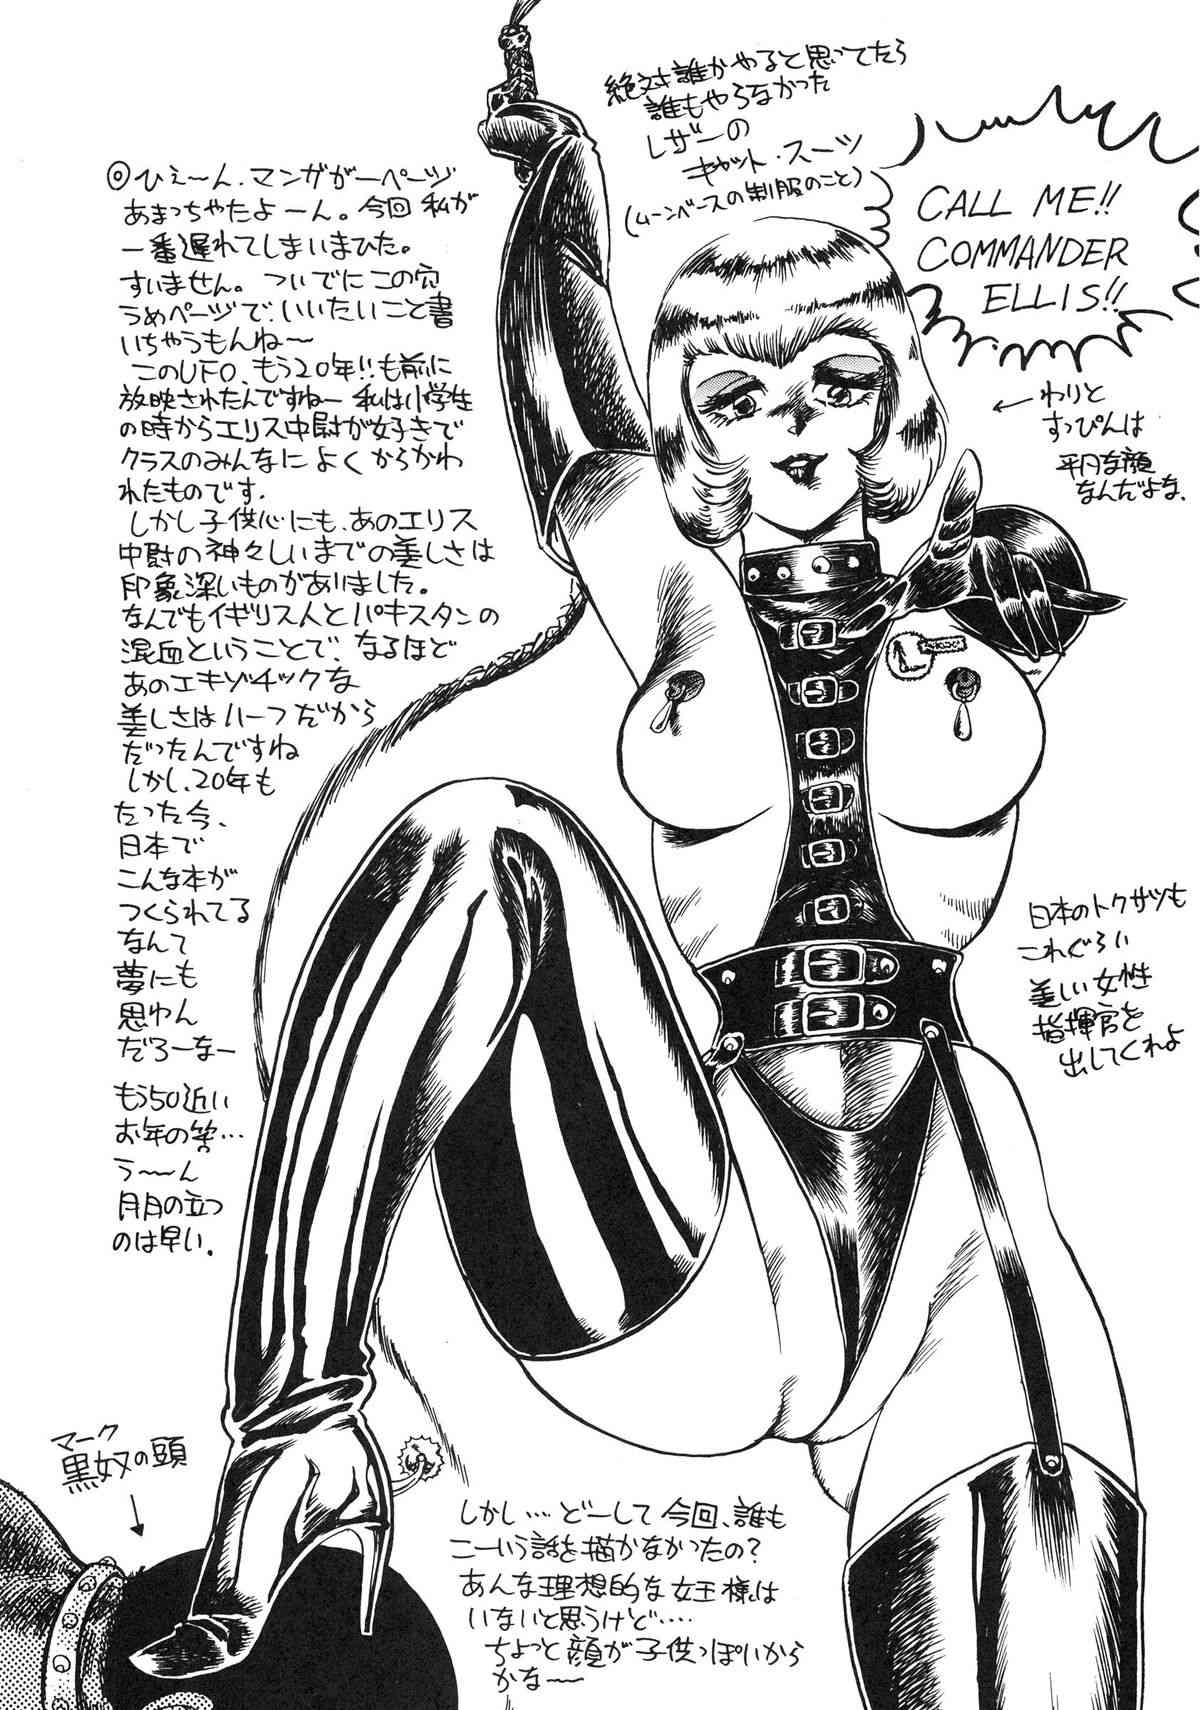 絶対誰かやると思ってたら
誰もやらなかった
レザーの
キャット・スーツ
(ムーンベースの制服のこと)
CALL ME!!
COMMANDER
ELLIS!!
◎ひえ〜ん、マンガが一ページ
あまっちゃたよーん。今回私が
一番遅れてしまいまひた。
すいません。ついでにこの穴
うめページで、いいたいこと書
いちゃうもんね〜
このUFO、もう20年!!も前に
放映されたんですねー 私は小学生
の時からエリス中尉が好きで
クラスのみんなによくからかわ
れたものです.
しかし子供心にも、あのエリス
中尉の神々しいまでの美しさは
印象深いものがありました。
なんでもイギリス人とパキスタンの
混血ということで、なるほど
あのエキゾチックな
美しさはハーフだから
だったんですね
しかし、20年も
たった今、
日本で
こんな本が
つくられてる
なんて
夢にも
思わん
だろーなー
もう50近い
お年の筈…
う〜〜ん
月日の立つ
のは早い.
←わりと
すっぴんは
平凡な顔
なんだよな.
日本のトクサツも
これぐらい
美しい女性
指揮官を
出してくれよ
マーク
黒奴の頭
しかし…どーして今回、誰も
こーいう話を描かなかったの？
あんな理想的な女王様は
いないと思うけど….
ちょっと顔が子供っぽいから
かな〜〜